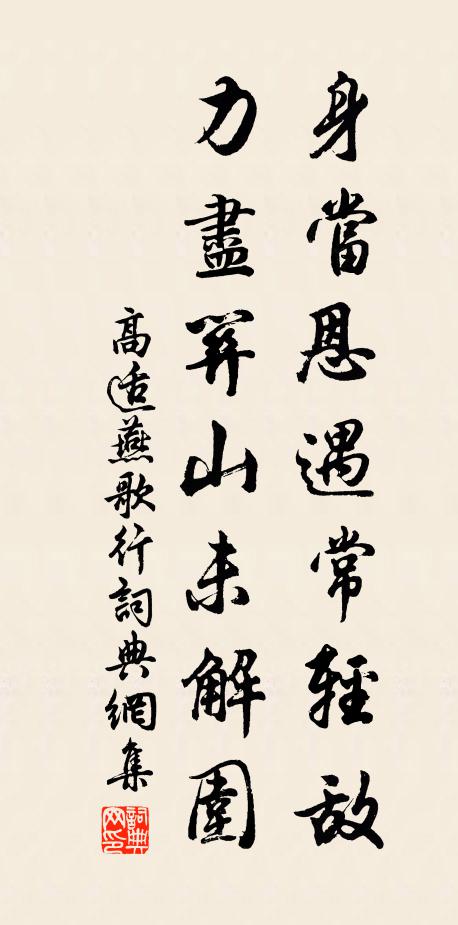 身當恩遇常輕敵
力盡關山未解圍
高適燕歌行詞典網集
詞典網印